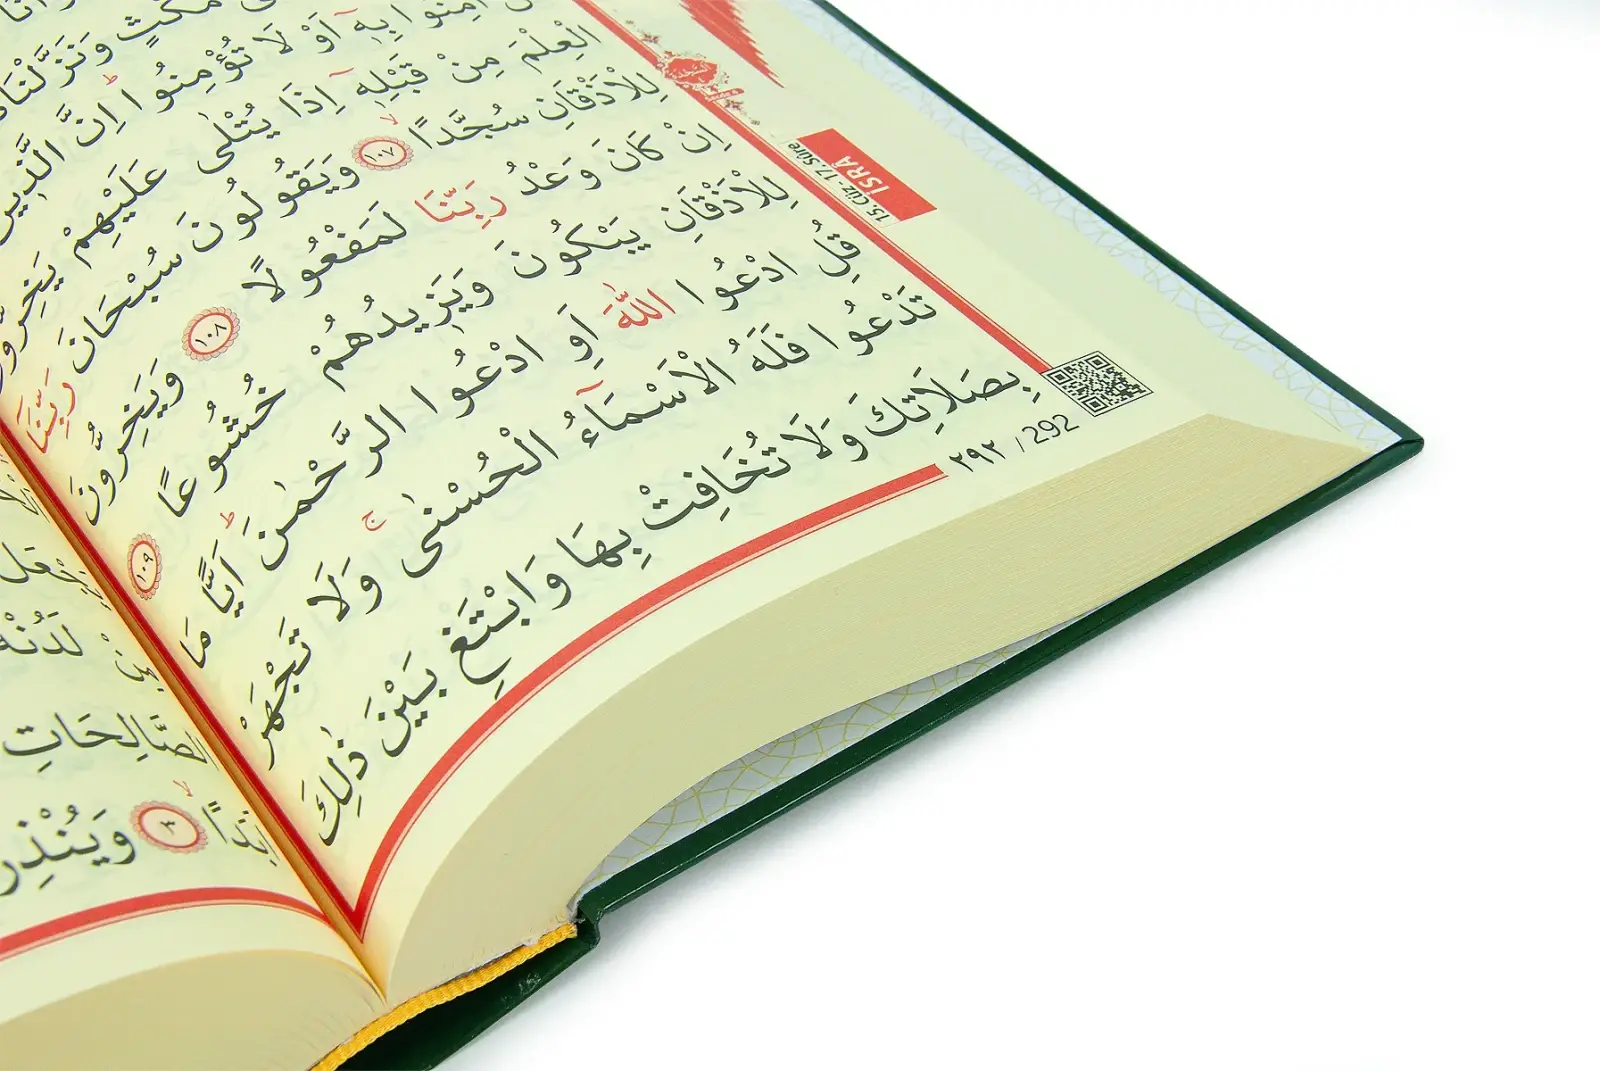 مُكْثٍ وَنَزَّلْنَاهُ
اٰمِنُوا بِهٖٓ اَوْ لَا تُؤْمِنُوا اِنَّ الَّذ۪ينَ
الْعِلْمَ مِنْ قَبْلِهٖٓ اِذَا يُتْلٰى عَلَيْهِمْ يَخِرُّونَ
لِلْاَذْقَانِ سُجَّدًا ١٠٧ وَيَقُولُونَ سُبْحَانَ رَبِّنَٓا
اِنْ كَانَ وَعْدُ رَبِّنَا لَمَفْعُولًا ١٠٨ وَيَخِرُّونَ
لِلْاَذْقَانِ يَبْكُونَ وَيَز۪يدُهُمْ خُشُوعًا ١٠٩
قُلِ ادْعُوا اللّٰهَ اَوِ ادْعُوا الرَّحْمٰنَ اَيًّا مَا
تَدْعُوا فَلَهُ الْاَسْمَٓاءُ الْحُسْنٰى وَلَا تَجْهَرْ
بِصَلَاتِكَ وَلَا تُخَافِتْ بِهَا وَابْتَغِ بَيْنَ ذٰلِكَ
٢٩٢ / 292
15. Cüz - 17. Sûre
İSRÂ
لَدُنْهُ
الصَّالِحَاتِ
اَبَدًا ٣ وَيُنْذِرَ